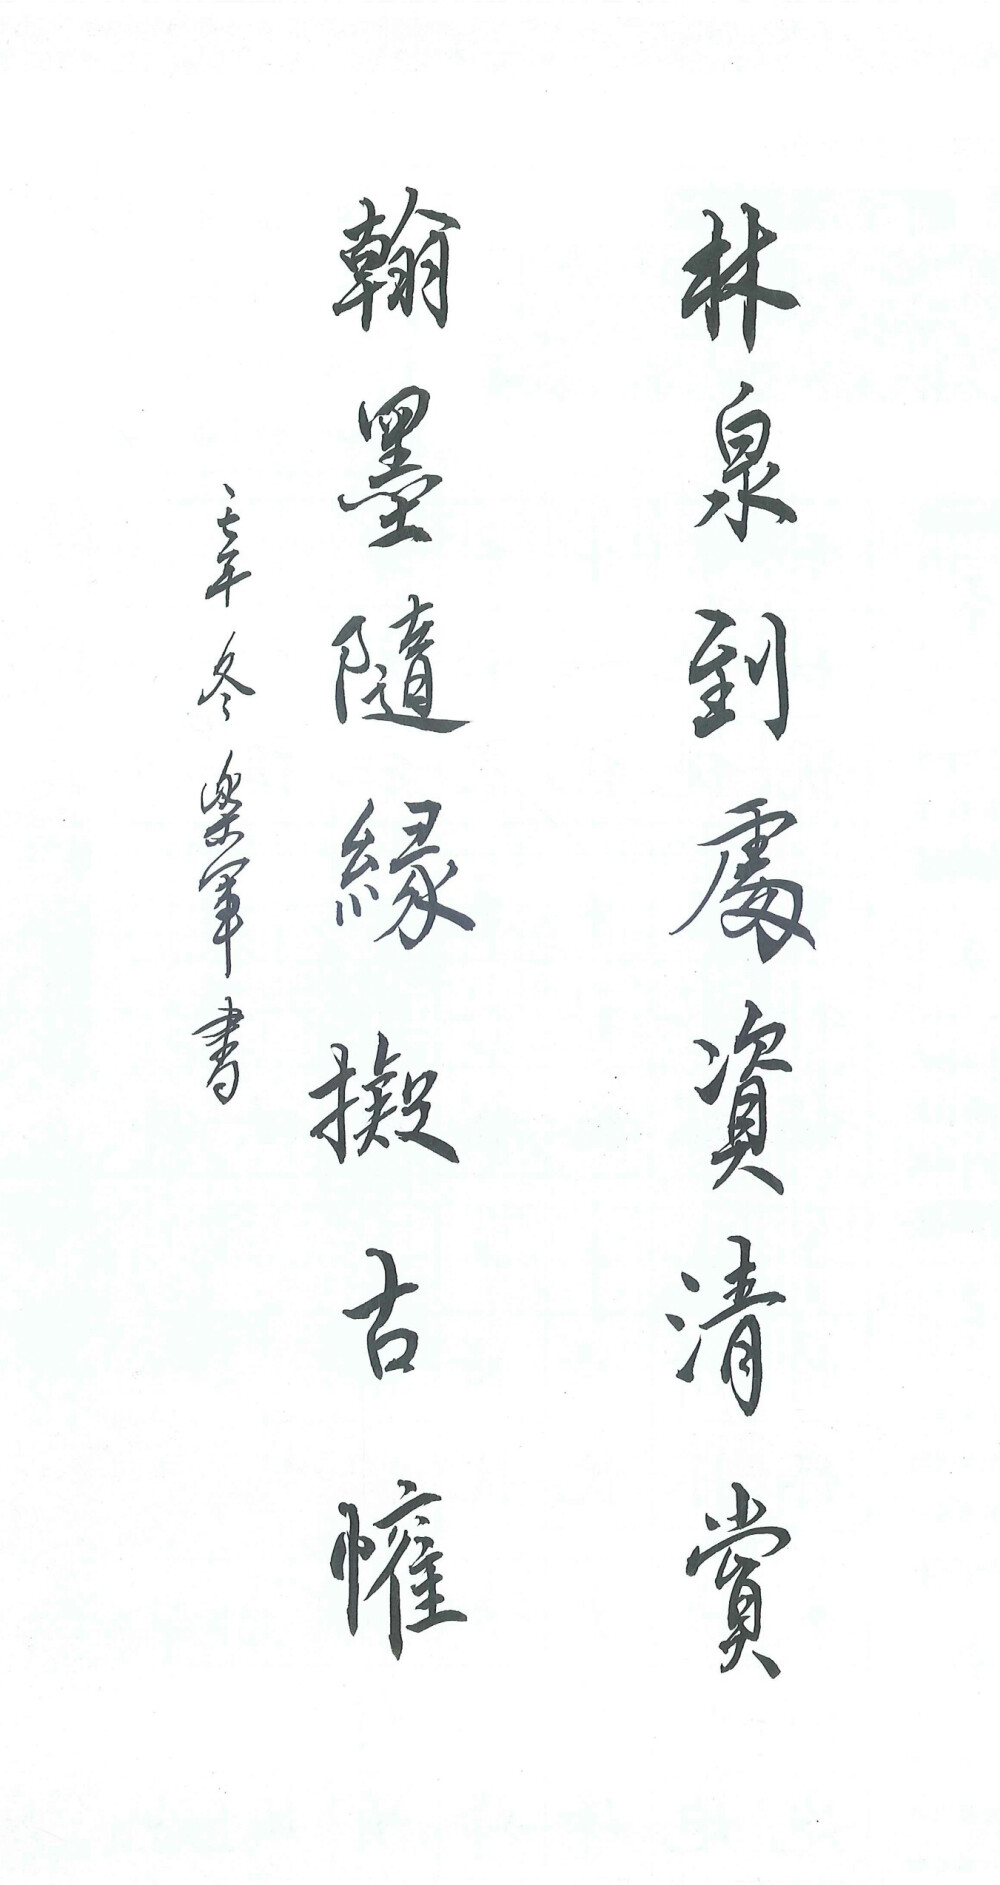 林泉到處資清賞
翰墨隨緣擬古懽
七年冬樂軍書